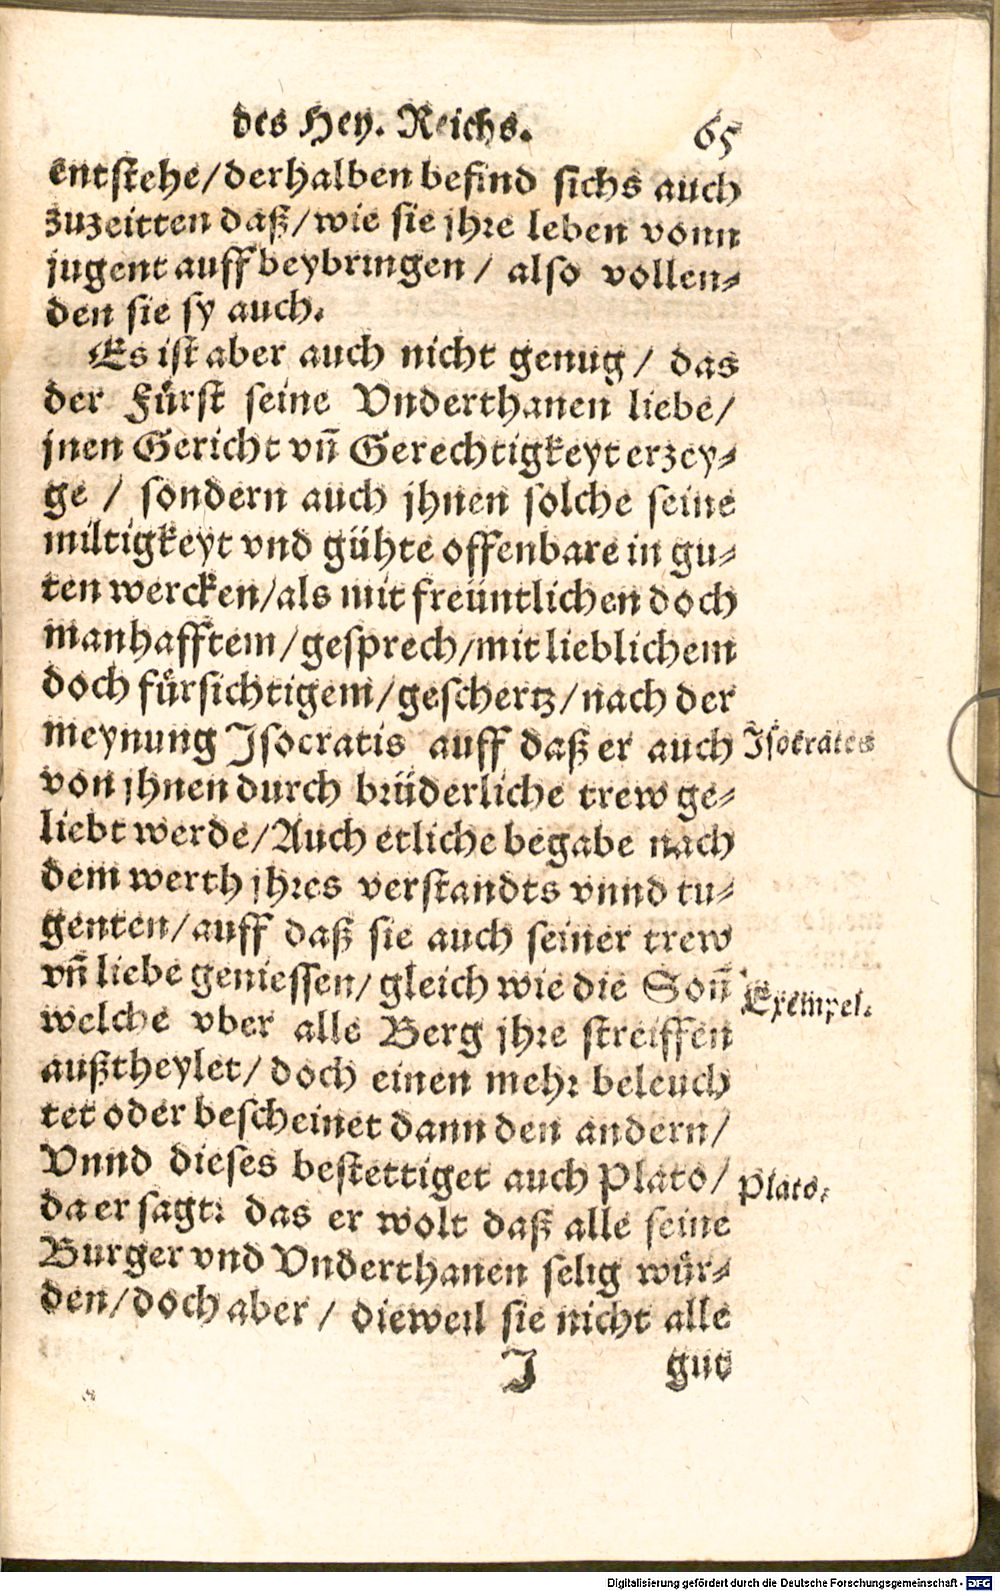 des Hey. Reichs. 65
entstehe/derhalben befind sichs auch
zuzeitten daß/wie sie jhre leben vonn
jugent auff beybringen/ also vollen-
den sie sy auch.
Es ist aber auch nicht genug/ das
der Fürst seine Vnderthanen liebe/
jnen Gericht vñ Gerechtigkeyt erzey-
ge / sondern auch jhnen solche seine
miltigkeyt vnd gühte offenbare in gu-
ten wercken/als mit freüntlichen doch
manhafftem/gesprech/mit lieblichem
doch fürsichtigem/geschertz/nach der
meynung Isocratis auff daß er auch
Isocrates
von jhnen durch brüderliche trew ge-
liebt werde/Auch etliche begabe nach
dem werth jhres verstandts vnnd tu-
genten/auff daß sie auch seiner trew
vñ liebe geniessen/gleich wie die Soñ
Exempel.
welche vber alle Berg jhre streiffen
außtheylet/doch einen mehr beleuch
tet oder bescheinet dann den andern/
Vnnd dieses bestettiget auch Plato/
Plato.
da er sagt: das er wolt daß alle seine
Burger vnd Vnderthanen selig wür-
den/doch aber / dieweil sie nicht alle
I gut
Digitalisierung gefördert durch die Deutsche Forschungsgemeinschaft - DFG